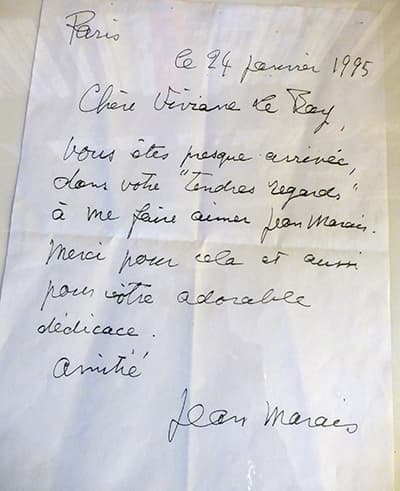 Paris
le 24 janvier 1995
Chère Viviane Le Ray,
vous êtes presque arrivée,
dans votre "Tendres regards"
à me faire aimer Jean Marais.
Merci pour cela et aussi
pour votre adorable
dédicace.
Amitié
Jean Marais